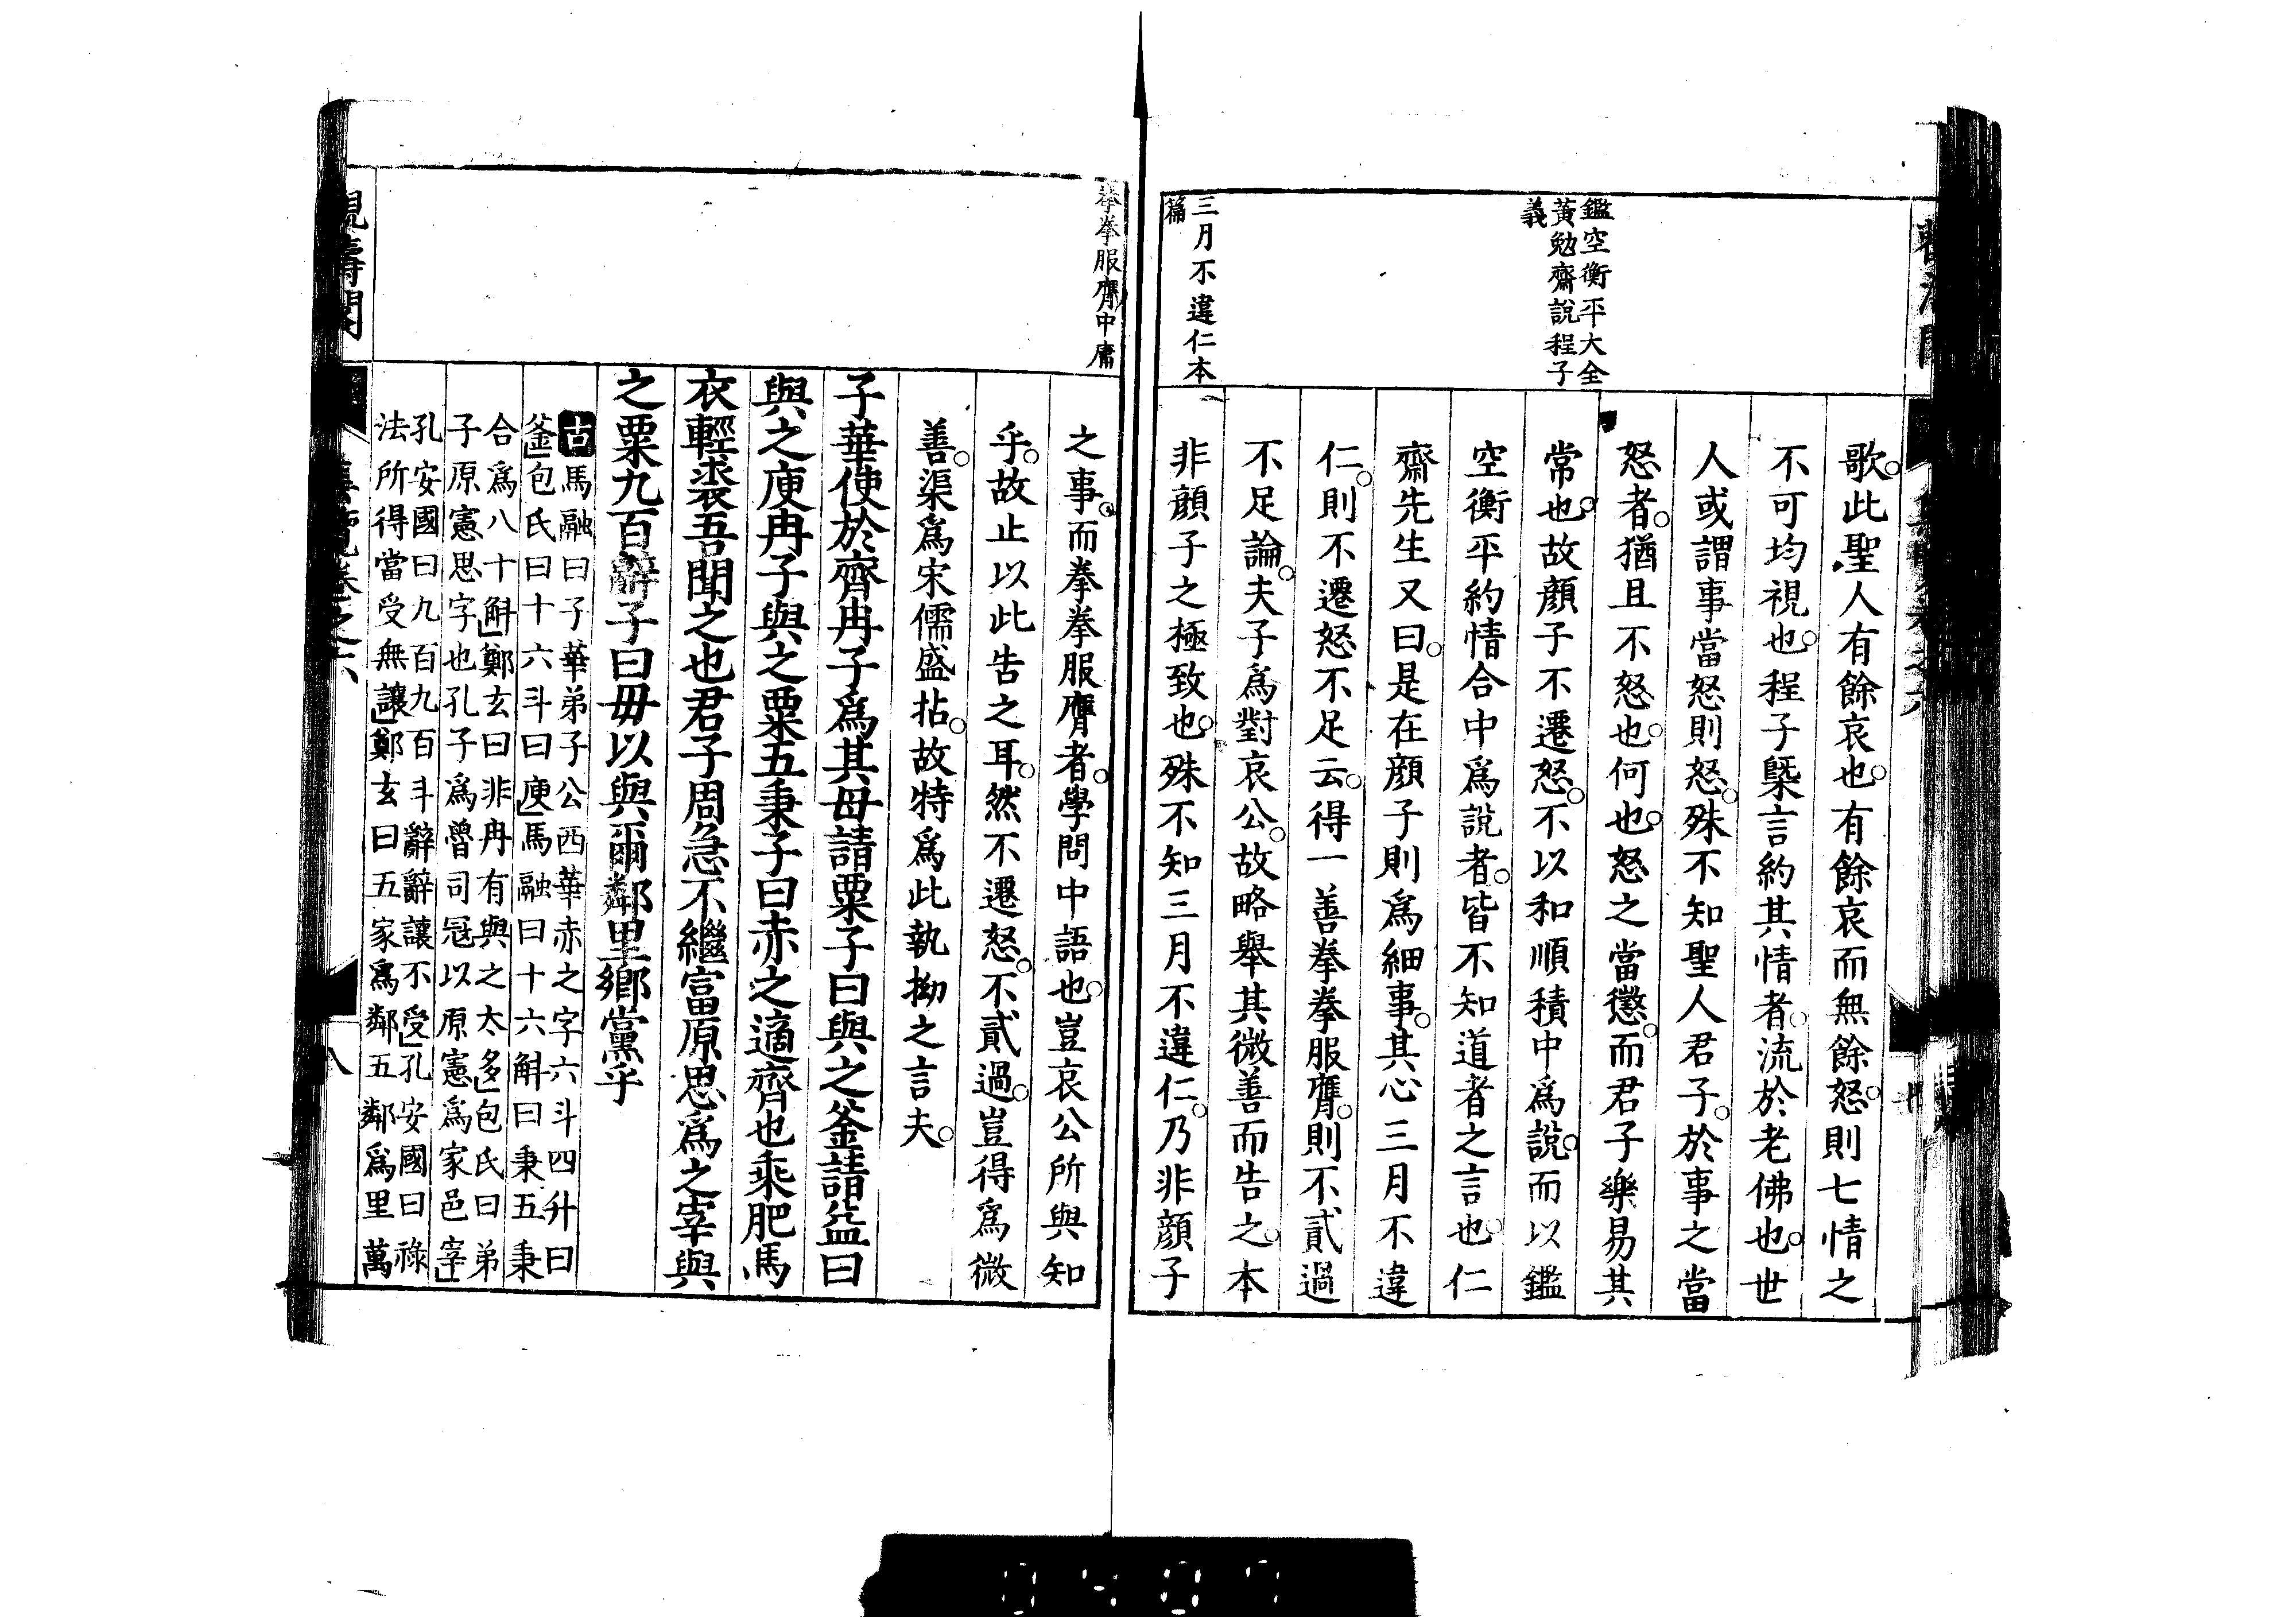 鑑空衡平大全
黃勉齋說程子
義
三月不違仁本
篇
歌。此聖人有餘哀也。有餘哀而無餘怒。則七情之
不可均視也。程子槩言約其情者。流於老佛也。世
人或謂事當怒則怒。殊不知聖人君子。於事之當
怒者。猶且不怒也。何也。怒之當懲。而君子樂易其
常也。故顔子不遷怒。不以和順積中爲說。而以鑑
空衡平約情合中爲說者。皆不知道者之言也。仁
齋先生又曰。是在顔子則爲細事。其心三月不違
仁。則不遷怒不足云。得一善拳拳服膺。則不貳過
不足論。夫子爲對哀公。故略舉其微善而告之。本
非顔子之極致也。殊不知三月不違仁。乃非顔子
拳拳服膺中庸
之事。而拳拳服膺者。學問中語也。豈哀公所與知
乎。故止以此告之耳。然不遷怒。不貳過。豈得爲微
善。渠爲宋儒盛拈。故特爲此執拗之言夫。
子華使於齊冉子爲其母請粟子曰與之釜請益曰
與之庾冉子與之粟五秉子曰赤之適齊也乘肥馬
衣輕裘吾聞之也君子周急不繼富原思爲之宰與
之粟九百辭子曰毋以與爾鄰里鄉黨乎
古馬融曰子華弟子公西華赤之字六斗四升曰
釜」包氏曰十六斗曰庾」馬融曰十六斛曰秉五秉
合爲八十斛」鄭玄曰非冉有與之太多」包氏曰弟
子原憲思字也孔子爲魯司冦以原憲爲家邑宰」
孔安國曰九百九百斗辭辭讓不受」孔安國曰祿
法所得當受無讓」鄭玄曰五家爲鄰五鄰爲里萬
觀濤閣
卷之六
八